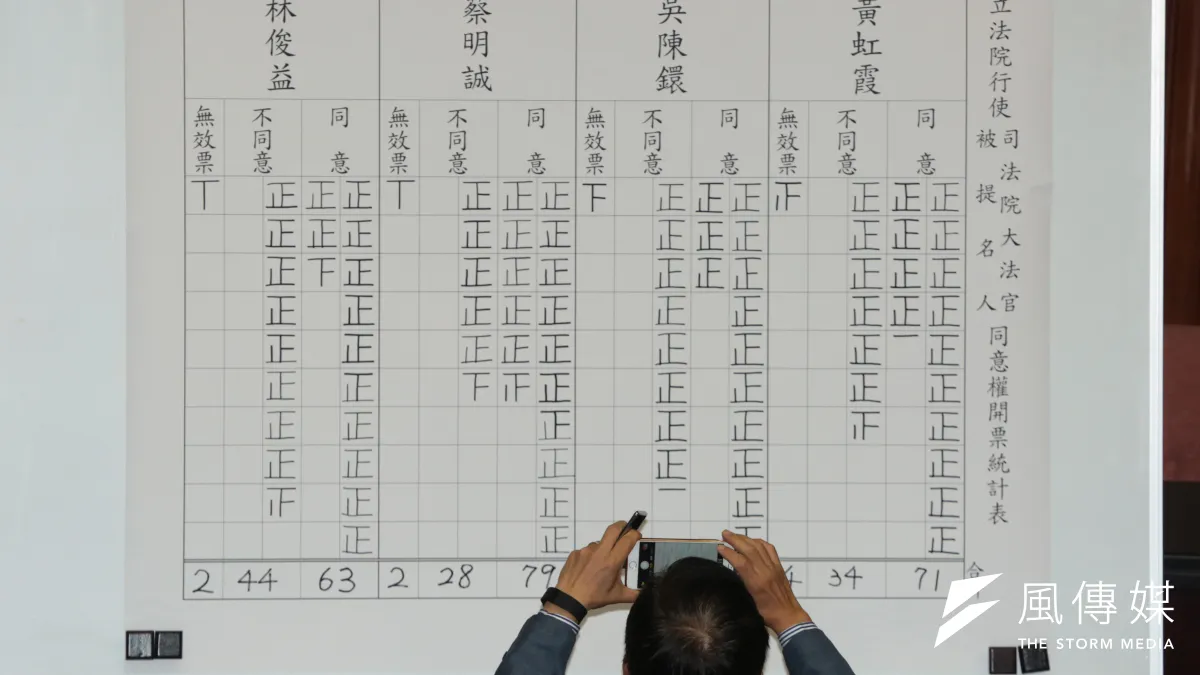 立法院行使
司法院大法官
被提名人
同意權開票統計表
黃虹霞
同意
正正正正正正正正正正
正正正正一
不同意
正正正正正正𤴓
無效票
𤴓
71
34
4
吳陳鐶
同意
正正正正正正正正正正
正正正
不同意
正正正正正正正正一
無效票
下
蔡明誠
同意
正正正正正正正正正正
正正正正正𤴓
不同意
正正正正正下
無效票
丅
79
28
2
林俊益
同意
正正正正正正正正正正
正正下
不同意
正正正正正正正正𤴓
無效票
丅
63
44
2
合
風傳媒
THE STORM MEDIA